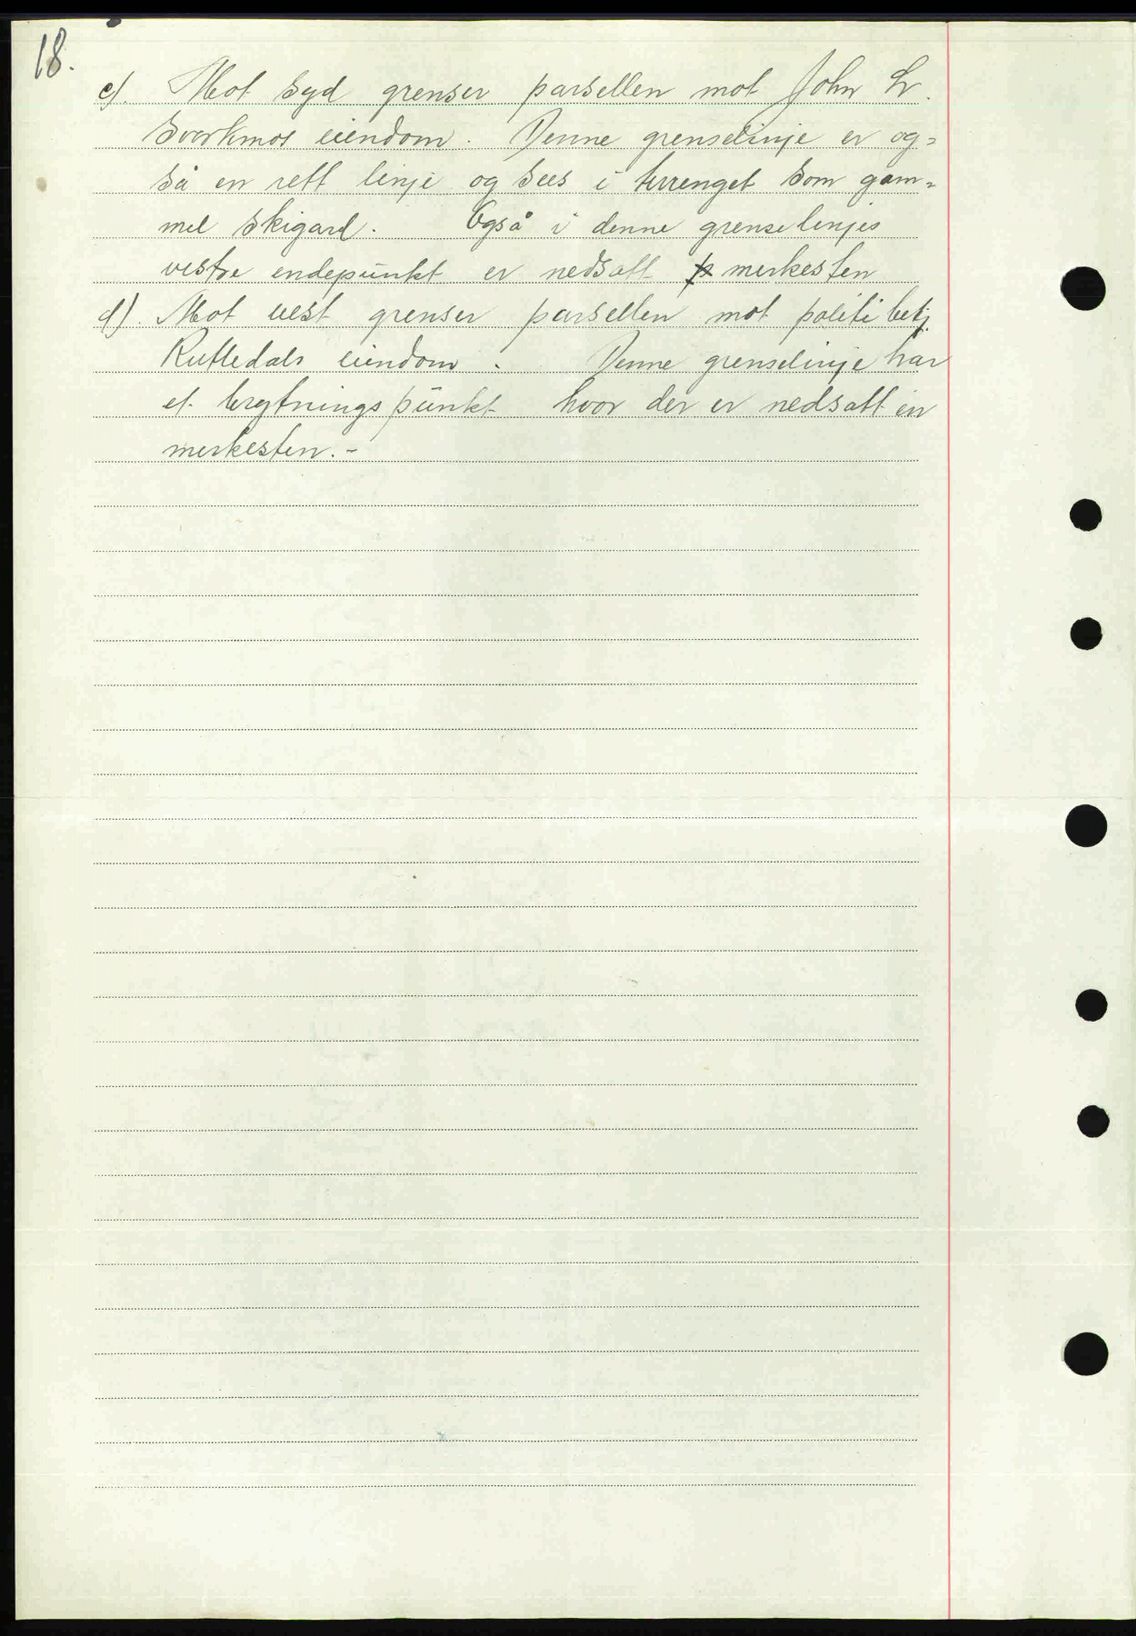 18.
c). Mot syd grenser parsellen mot John Lr.
Sværkmos eiendom. Denne grenselinje er og=
så en rett linje og sees i terrenget som gam=
mel skigard. Også i denne grenselinjes
vestre endepunkt er nedsatt merkesten
d) Mot vest grenser parsellen mot politibetj.
Rutledals eiendom. Denne grenselinje har
et brytningspunkt hvor der er nedsatt en
merkesten.-